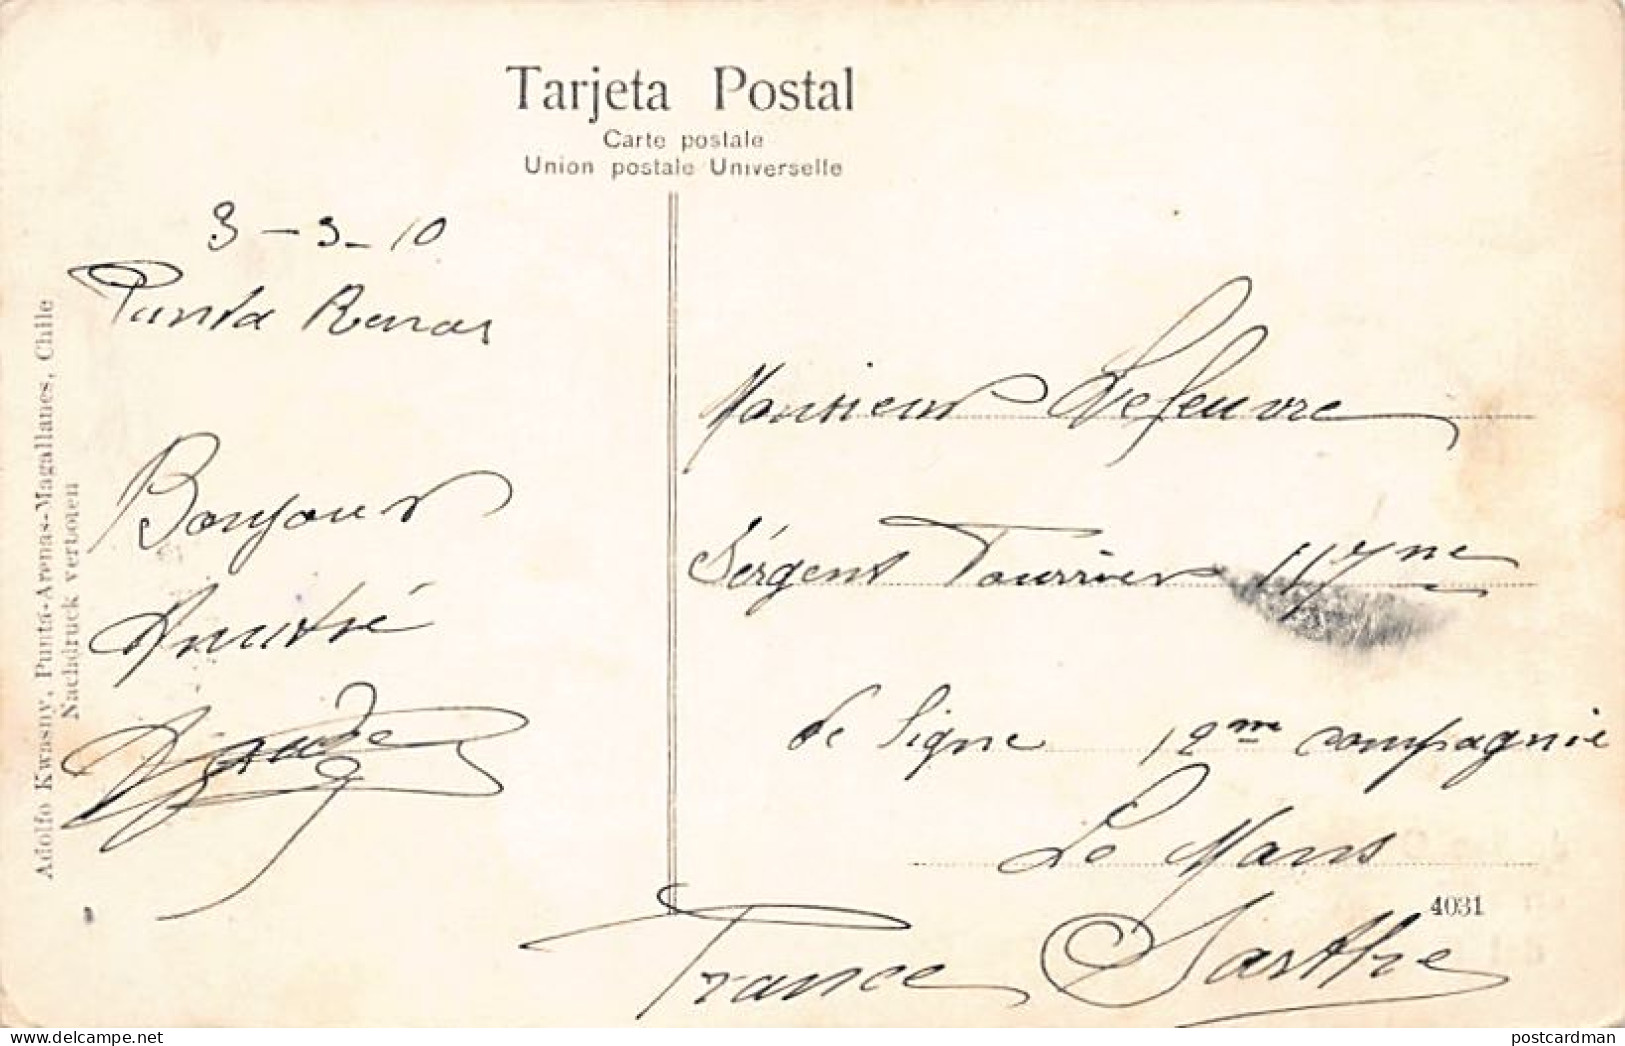 Tarjeta Postal
Carte postale
Union postale Universelle
3-3-10
Punta Renas
Bonjour
André
Monsieur Lefeuvre
Sérgent Fourrier 117me
de ligne 12me compagnie
Le Mans
Sarthe
France
4031
Adolfo Kwasny, Punta-Arenas-Magallanes, Chile
Nachdruck verboten
postcardman